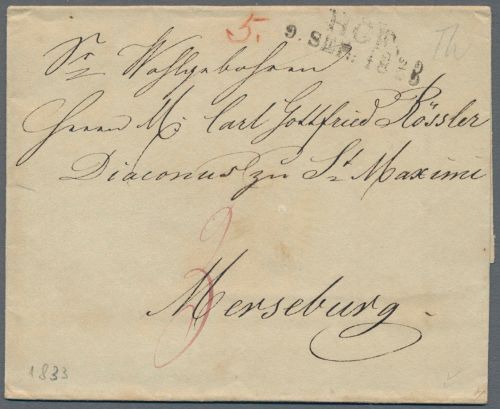 5.
HOF
9. SEP. 1833
Th
Sr Wohlgebohren
Herrn M. Carl Gottfried Rössler
Diaconus zu St Maximi
Merseburg.
1833